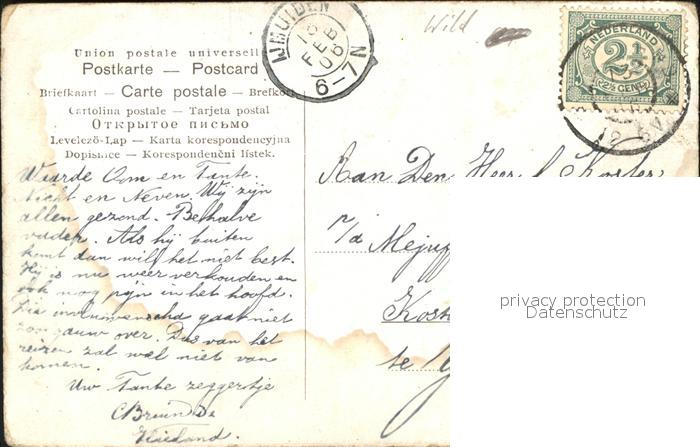 IJMUIDEN
FEB
6-7N
Wild
NEDERLAND
2½
(2½ CENT)
Union postale universelle
Postkarte — Postcard
Briefkaart — Carte postale — Brefkort
Cartolina postale — Tarjeta postal
Открытое письмо
Levelező-Lap — Karta korespondencyjna
Dopisnice — Korespondenční lístek.
Waarde Oom en Tante.
Nicht en Neven. Wij zijn
allen gezond. Behalve
vader. Als hij buiten
komt dan wil het niet best.
Hij is nu weer verkouden en
ook nog pijn in het hoofd.
gaat niet
zoo gauw over. Dus van het
reizen zal wel niet van
komen.
Uw Tante zeggertje
Vlieland.
Aan Den Heer
p/a Mejuff
Kost
te
privacy protection
Datenschutz